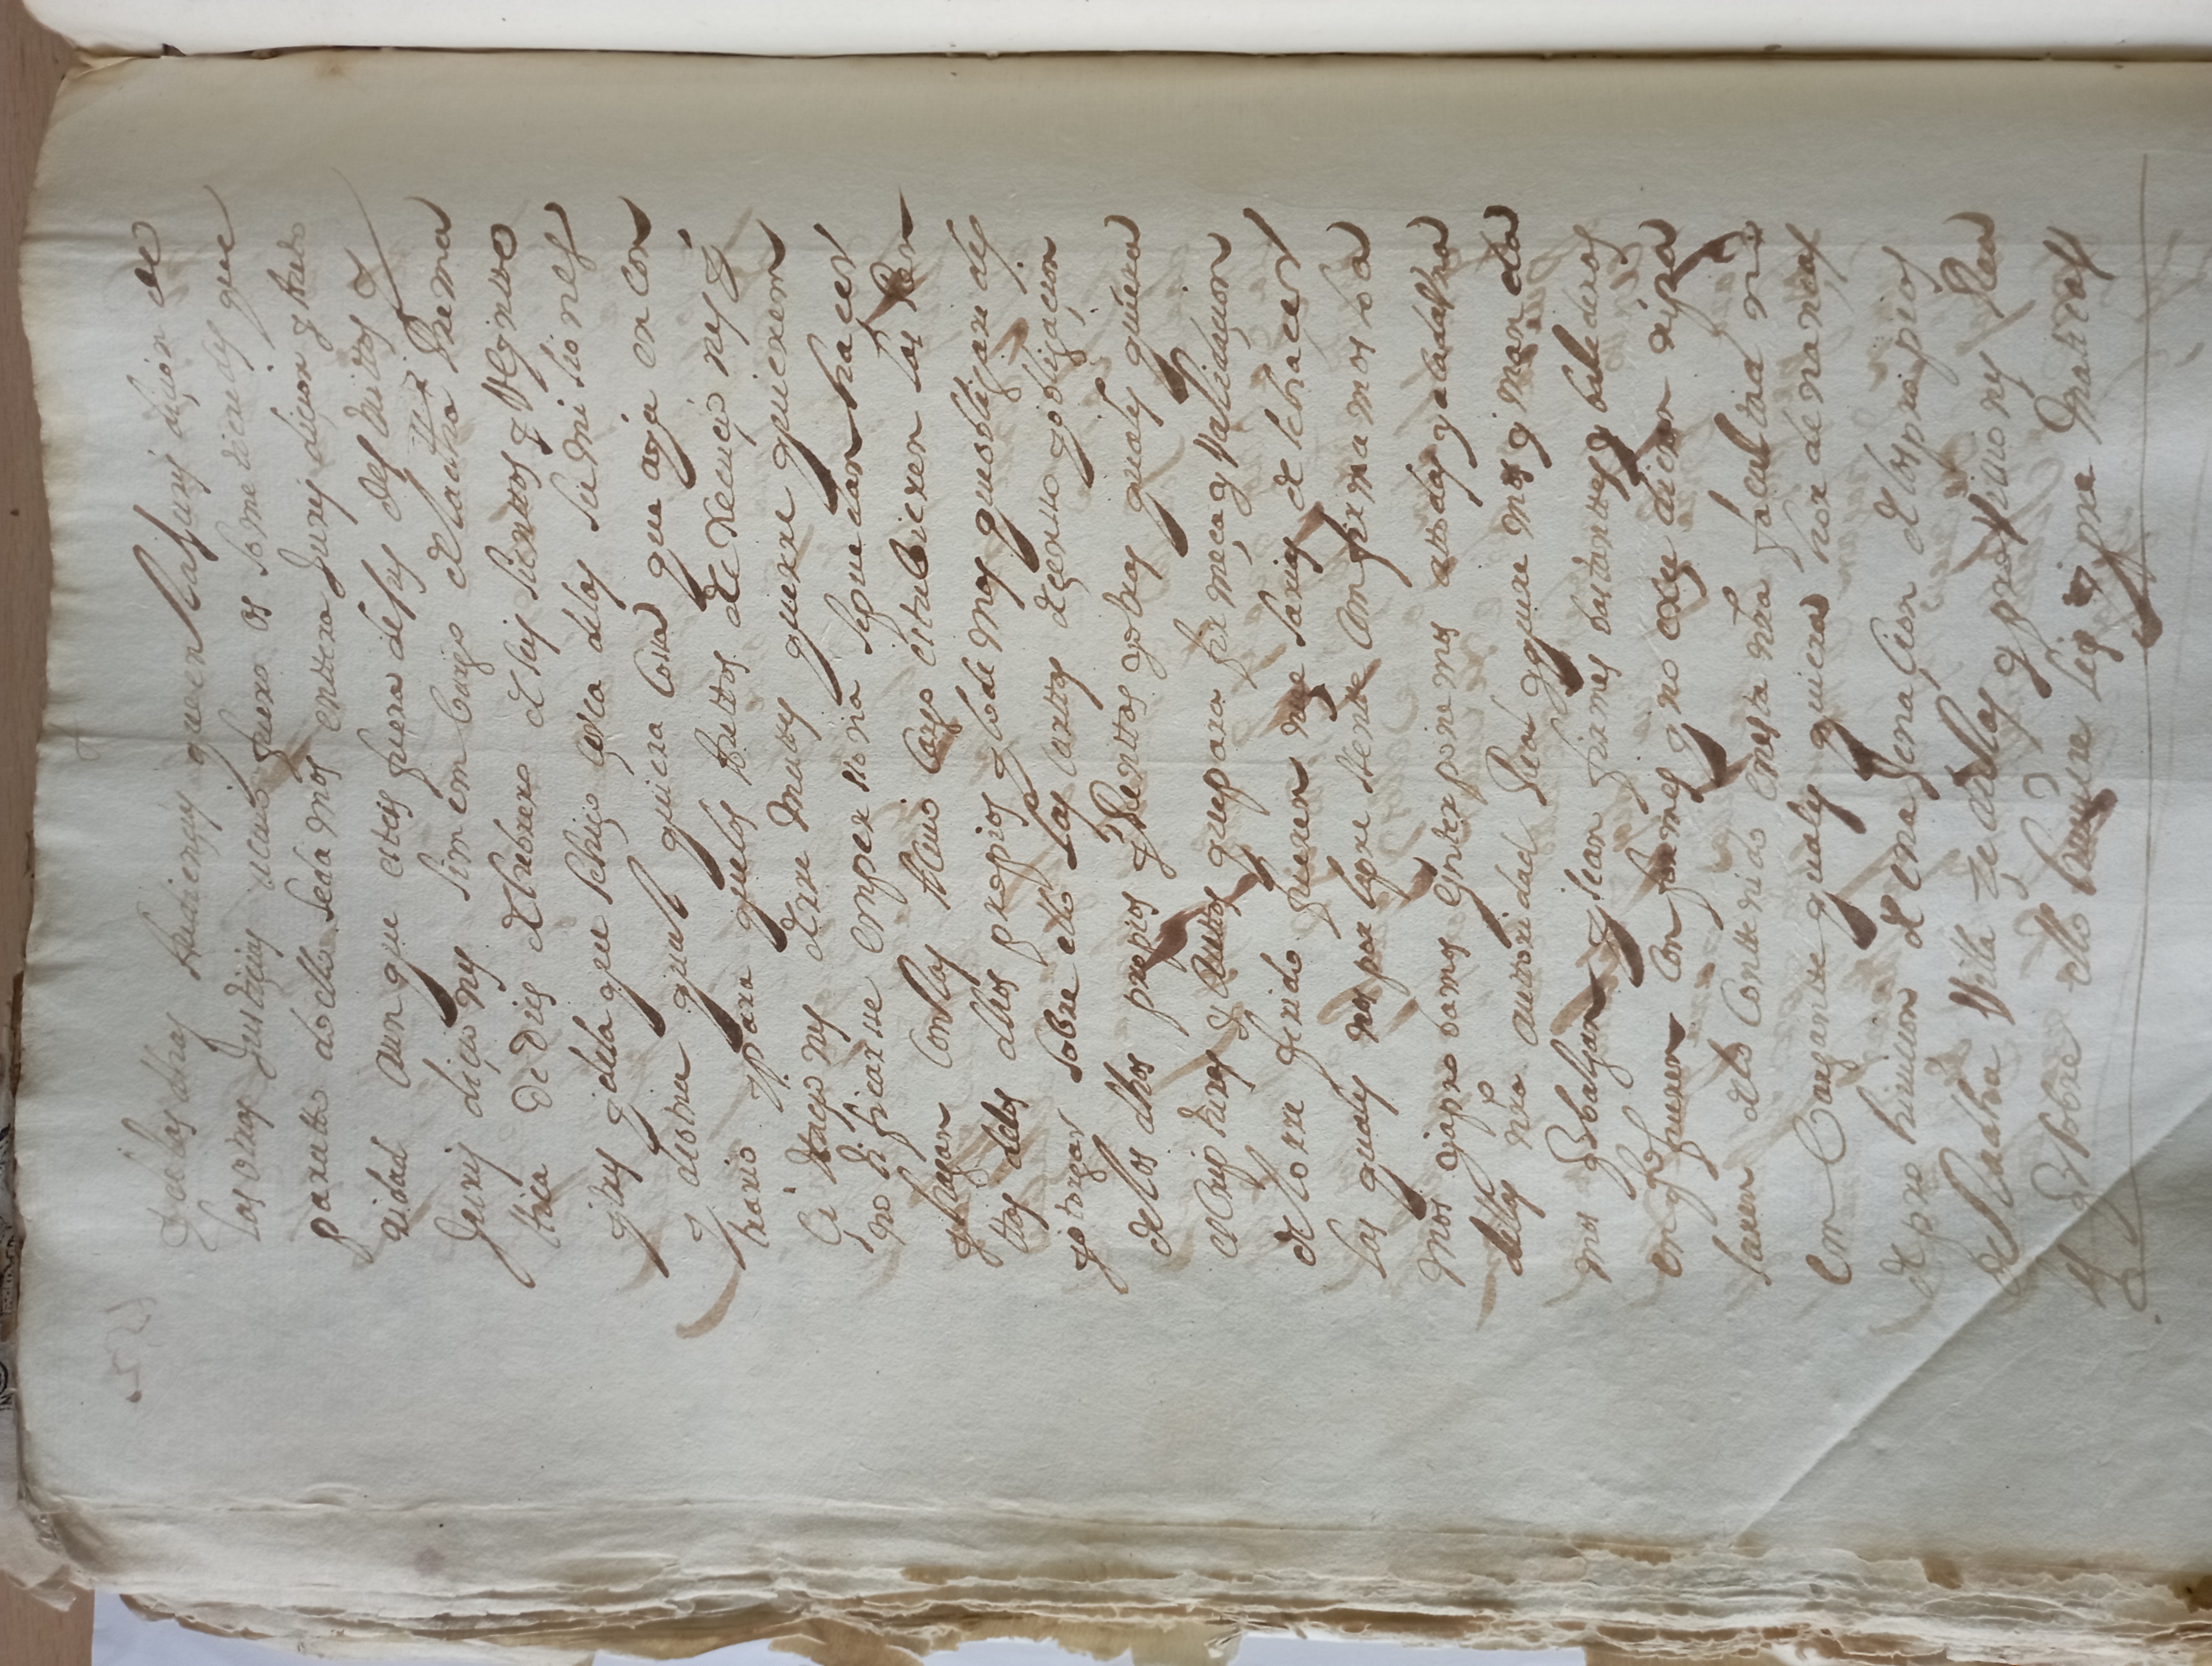 y de las dhas Audiençias que en la Juris diçion de
las otras Justiçias a cuio fuero os sometieredes que
para tto do ello se damos enttera Juris diçion y Auto
ridad aun que esteis fuera de sus des trittos y
Juris diçio nes sim em bargo de la dha Prema
ttica De Dies de hebrero de seis sienttos y Veyntte
y tres y dela que se hiço çerca delas su misiones
y de otra qual quiera cossa que aya en con
trario y para que los Auttos de execuçio nes y
Çi ttaçio nes de rre mattes que rre quierem
no tificarsse em perssona se puedan haçer
y hagan con las A Cuio cargo estubieren las Ren
ttas delos dhos propios y lo de mas que obligare des
y otorgar sobre ello las carttas de çensso y obligaçion
de los dhos propios y Renttas y otras quales quiera
escripturas y Auttos que para fir meça y Validaçion
de lo rre ferido fueren neçe sarias de se haçer
las quales nos por la pre ssentte comfirmamos loa
mos y apro bamos e ynter pone mos a ttodas y a cada Vna
dellas nra auttoridad Real y quere mos y man da
mos q balgan y sean firmes bastanttes y balederas
en q fueren con formes y no exçe dieren ni pa
saren de lo Conttenido en esta nra facultad no
em bargantte quales quiera hor denanças
de pro hiuiçion de ena Jenaçion de los pro pios
de la dha Villa çe dulas y pro Viçio nes Rea
les q sobre ello huuiere leis y pre maticas